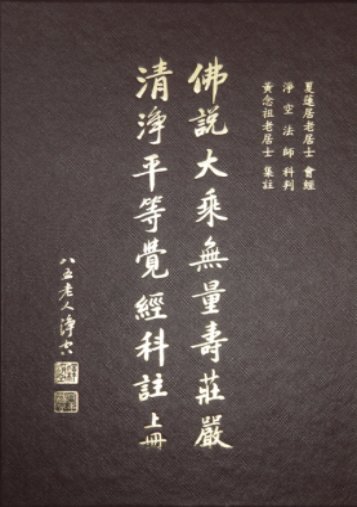 夏蓮居老居士 會經
淨空法師 科判
黃念祖老居士 集註
佛說大乘無量壽莊嚴
清淨平等覺經科註 上冊
八五老人淨空